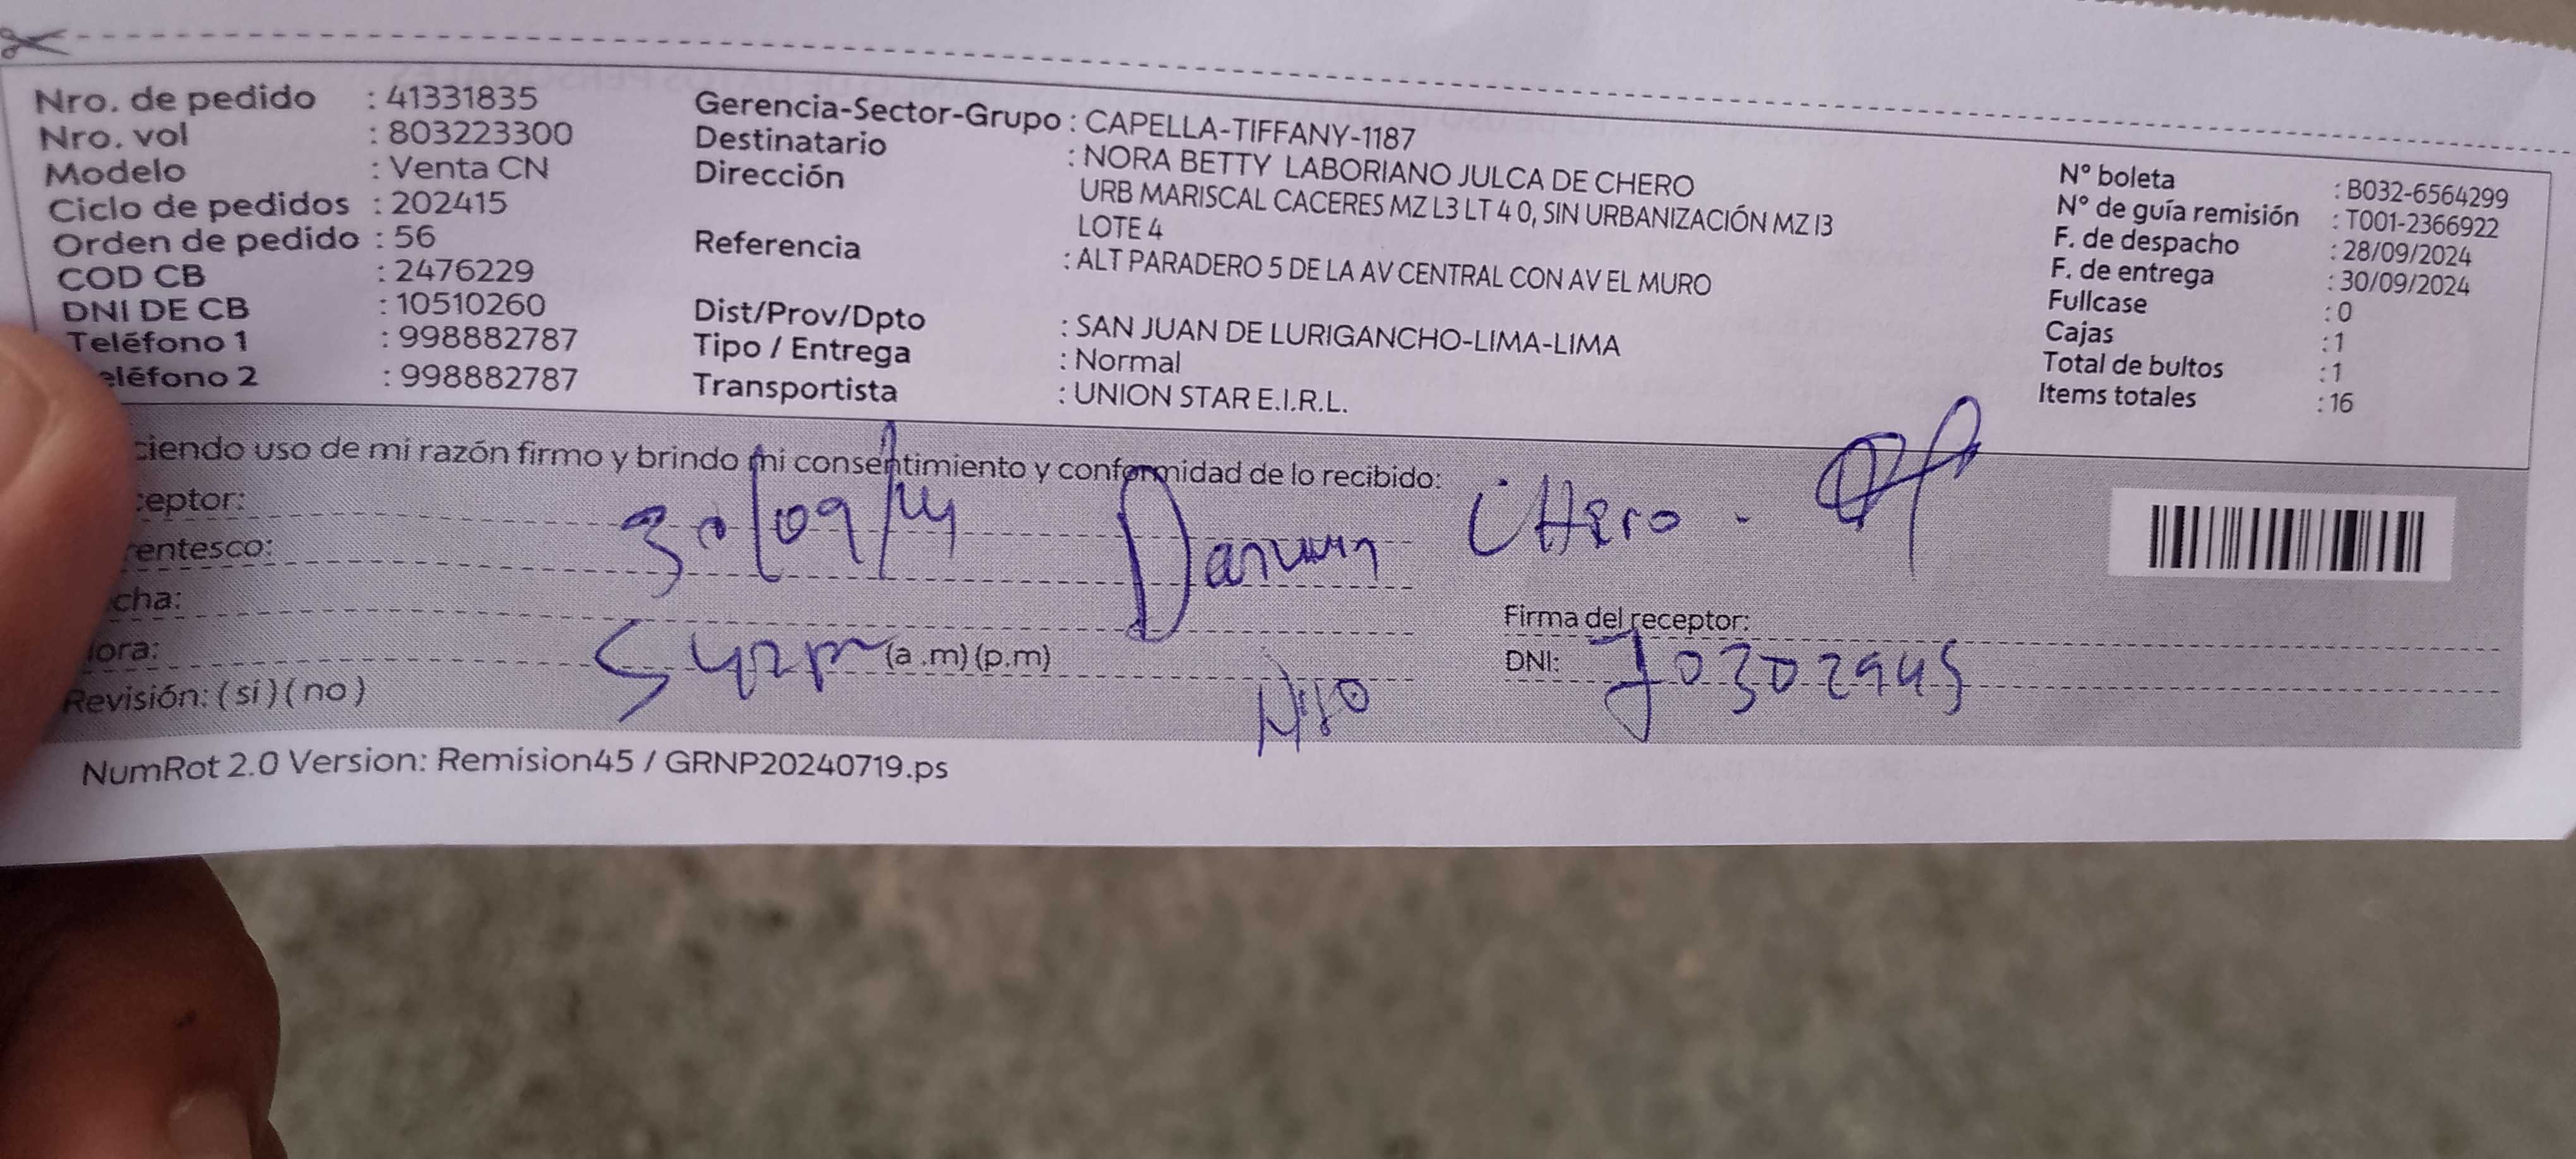 Nro. de pedido : 41331835
Nro. vol : 803223300
Modelo : Venta CN
Ciclo de pedidos : 202415
Orden de pedido : 56
COD CB : 2476229
DNI DE CB : 10510260
Teléfono 1 : 998882787
eléfono 2 : 998882787
Gerencia-Sector-Grupo : CAPELLA-TIFFANY-1187
Destinatario : NORA BETTY LABORIANO JULCA DE CHERO
Dirección URB MARISCAL CACERES MZ L3 LT 4 0, SIN URBANIZACIÓN MZ I3
LOTE 4
Referencia : ALT PARADERO 5 DE LA AV CENTRAL CON AV EL MURO
Dist/Prov/Dpto : SAN JUAN DE LURIGANCHO-LIMA-LIMA
Tipo / Entrega : Normal
Transportista : UNION STAR E.I.R.L.
N° boleta : B032-6564299
N° de guía remisión : T001-2366922
F. de despacho : 28/09/2024
F. de entrega : 30/09/2024
Fullcase : 0
Cajas : 1
Total de bultos : 1
Items totales : 16
ciendo uso de mi razón firmo y brindo mi consentimiento y conformidad de lo recibido:
ceptor:
30/09/24 CHero
rentesco:
cha:
Firma del receptor:
ora: (a .m) (p.m)
DNI: 70302945
Revisión: ( si ) ( no )
NumRot 2.0 Version: Remision45 / GRNP20240719.ps